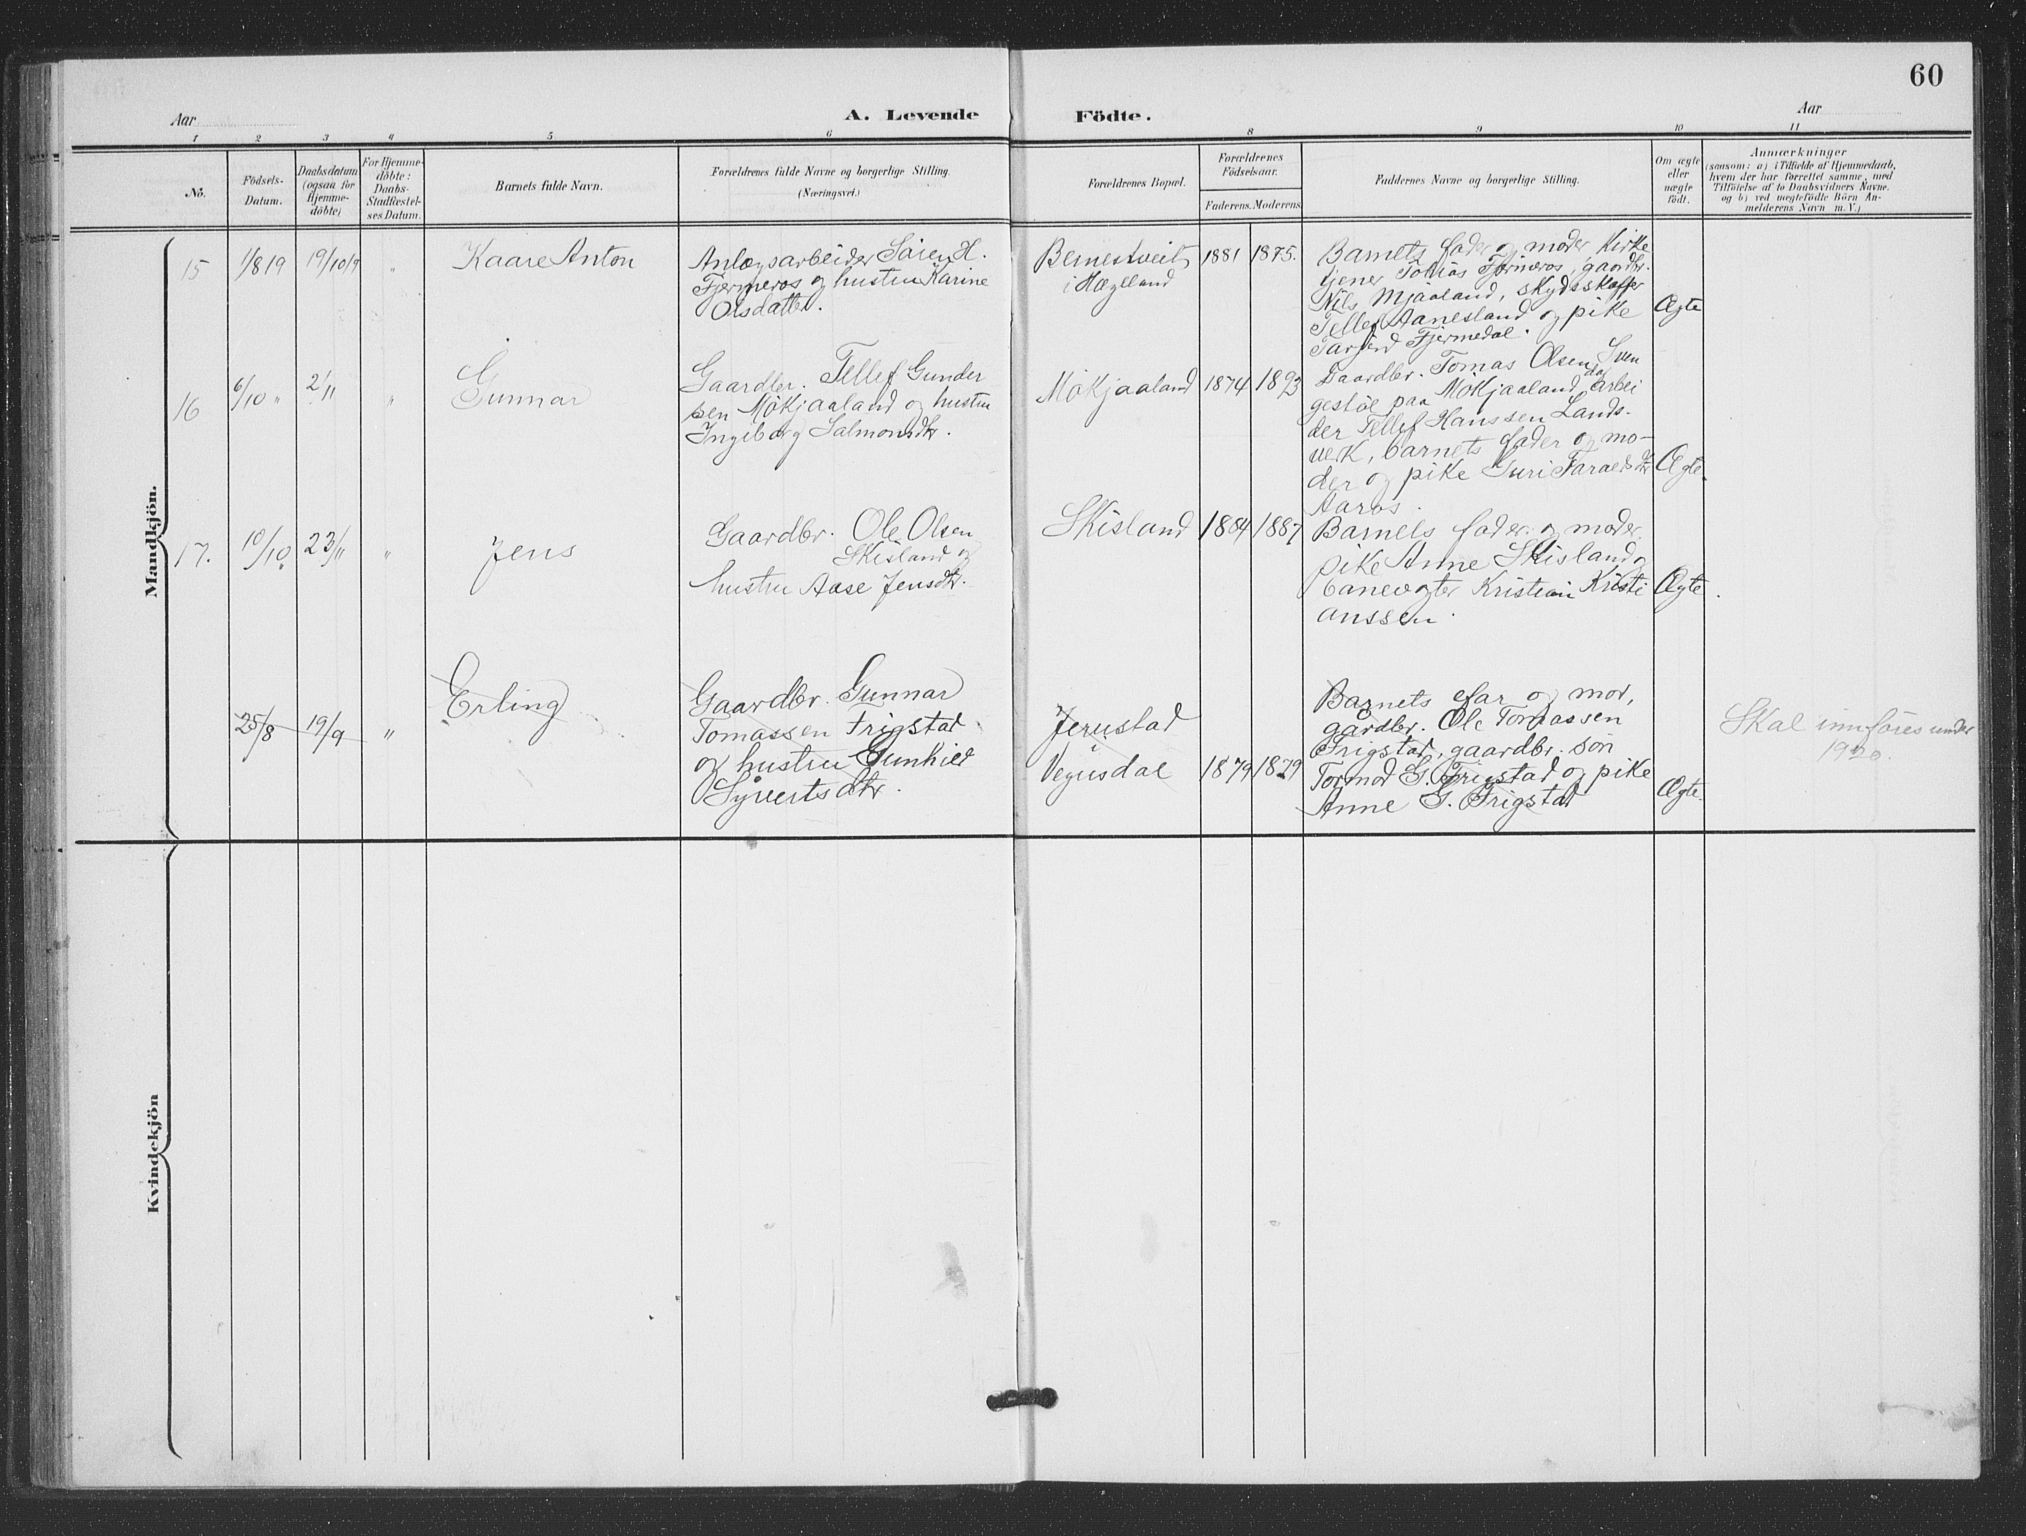 60
Aar
A. Levende Födte.
Aar
1 2 3 4 5 6 8 9 10 11
No.
Födsels-
Datum.
Daabsdatum
(ogsaa for
Hjemme-
döbte)
For Hjemme-
döbte:
Daabs-
Stadfæstel-
ses Datum.
Barnets fulde Navn.
Forældrenes fulde Navne og borgerlige Stilling.
(Næringsvei.)
Forældrenes Bopæl.
Forældrenes
Födselsaar.
Faderens. Moderens.
Faddernes Navne og borgerlige Stilling.
Om ægte
eller
uægte
födt.
Anmærkninger
(saasom: a) i Tilfælde af Hjemmedaab,
hvem der har forrettet samme, med
Tilföielse af to Daabsvidners Navne.
og b) ved uægtefödte Börn An-
melderens Navn m. V.)
Mandkjön.
15
1/8 19
19/10 19
"
Kaare Anton
Anlægsarbeider Sören H.
Fjermeros og hustru Karine
Olsdatter.
Bernestveit
i Hægeland
1881
1875.
Barnets fader og moder, Kirke
tjener Tomas Fjermeros, gaardbr.
Nils Mjaaland, skydsskaffer
Tellef Aanesland og pike
Tarjerd Fjermedal.
Ægte
16
6/10 "
2/11
"
Gunnar
Gaardbr. Tellef Gunder
sen Mökjaaland og hustru
Ingeborg Salmonsdtr.
Mökjaaland
1874
1893
Gaardbr. Tomas Olsen Sven
gestöl paa Mökjaaland, arbei
der Tellef Hanssen Lands-
verk, barnets fader og mo-
der og pike Guri Taraldsdtr
Aaros.
Ægte.
17.
10/10
23/11
"
Jens
Gaardbr. Ole Olsen
Skisland og
hustru Aase Jensdtr.
Skisland
1884
1887
Barnets fader og moder,
pike Anne Skisland og
banevogter Kristian Kristi
anssen.
Ægte.
25/8
19/9
"
Erling
Gaardbr. Gunnar
Tomassen Frigstad
og hustru Gunhild
Syvertsdtr.
Jerustad
Vegusdal
1879
1879
Barnets far og mor,
gårdbr. Ole Tomassen
Frigstad, gaardbr. sön
Tormod G. Frigstad og pike
Anne G. Frigstad
Ægte.
Skal innföres under
1920.
Kvindekjön